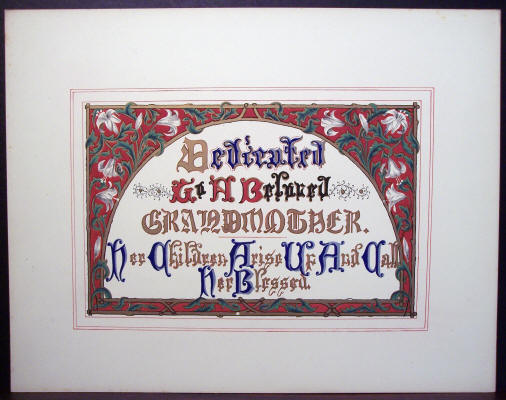 Dedicated
To A Beloved
GRANDMOTHER.
Her Children Arise Up And Call
Her Blessed.